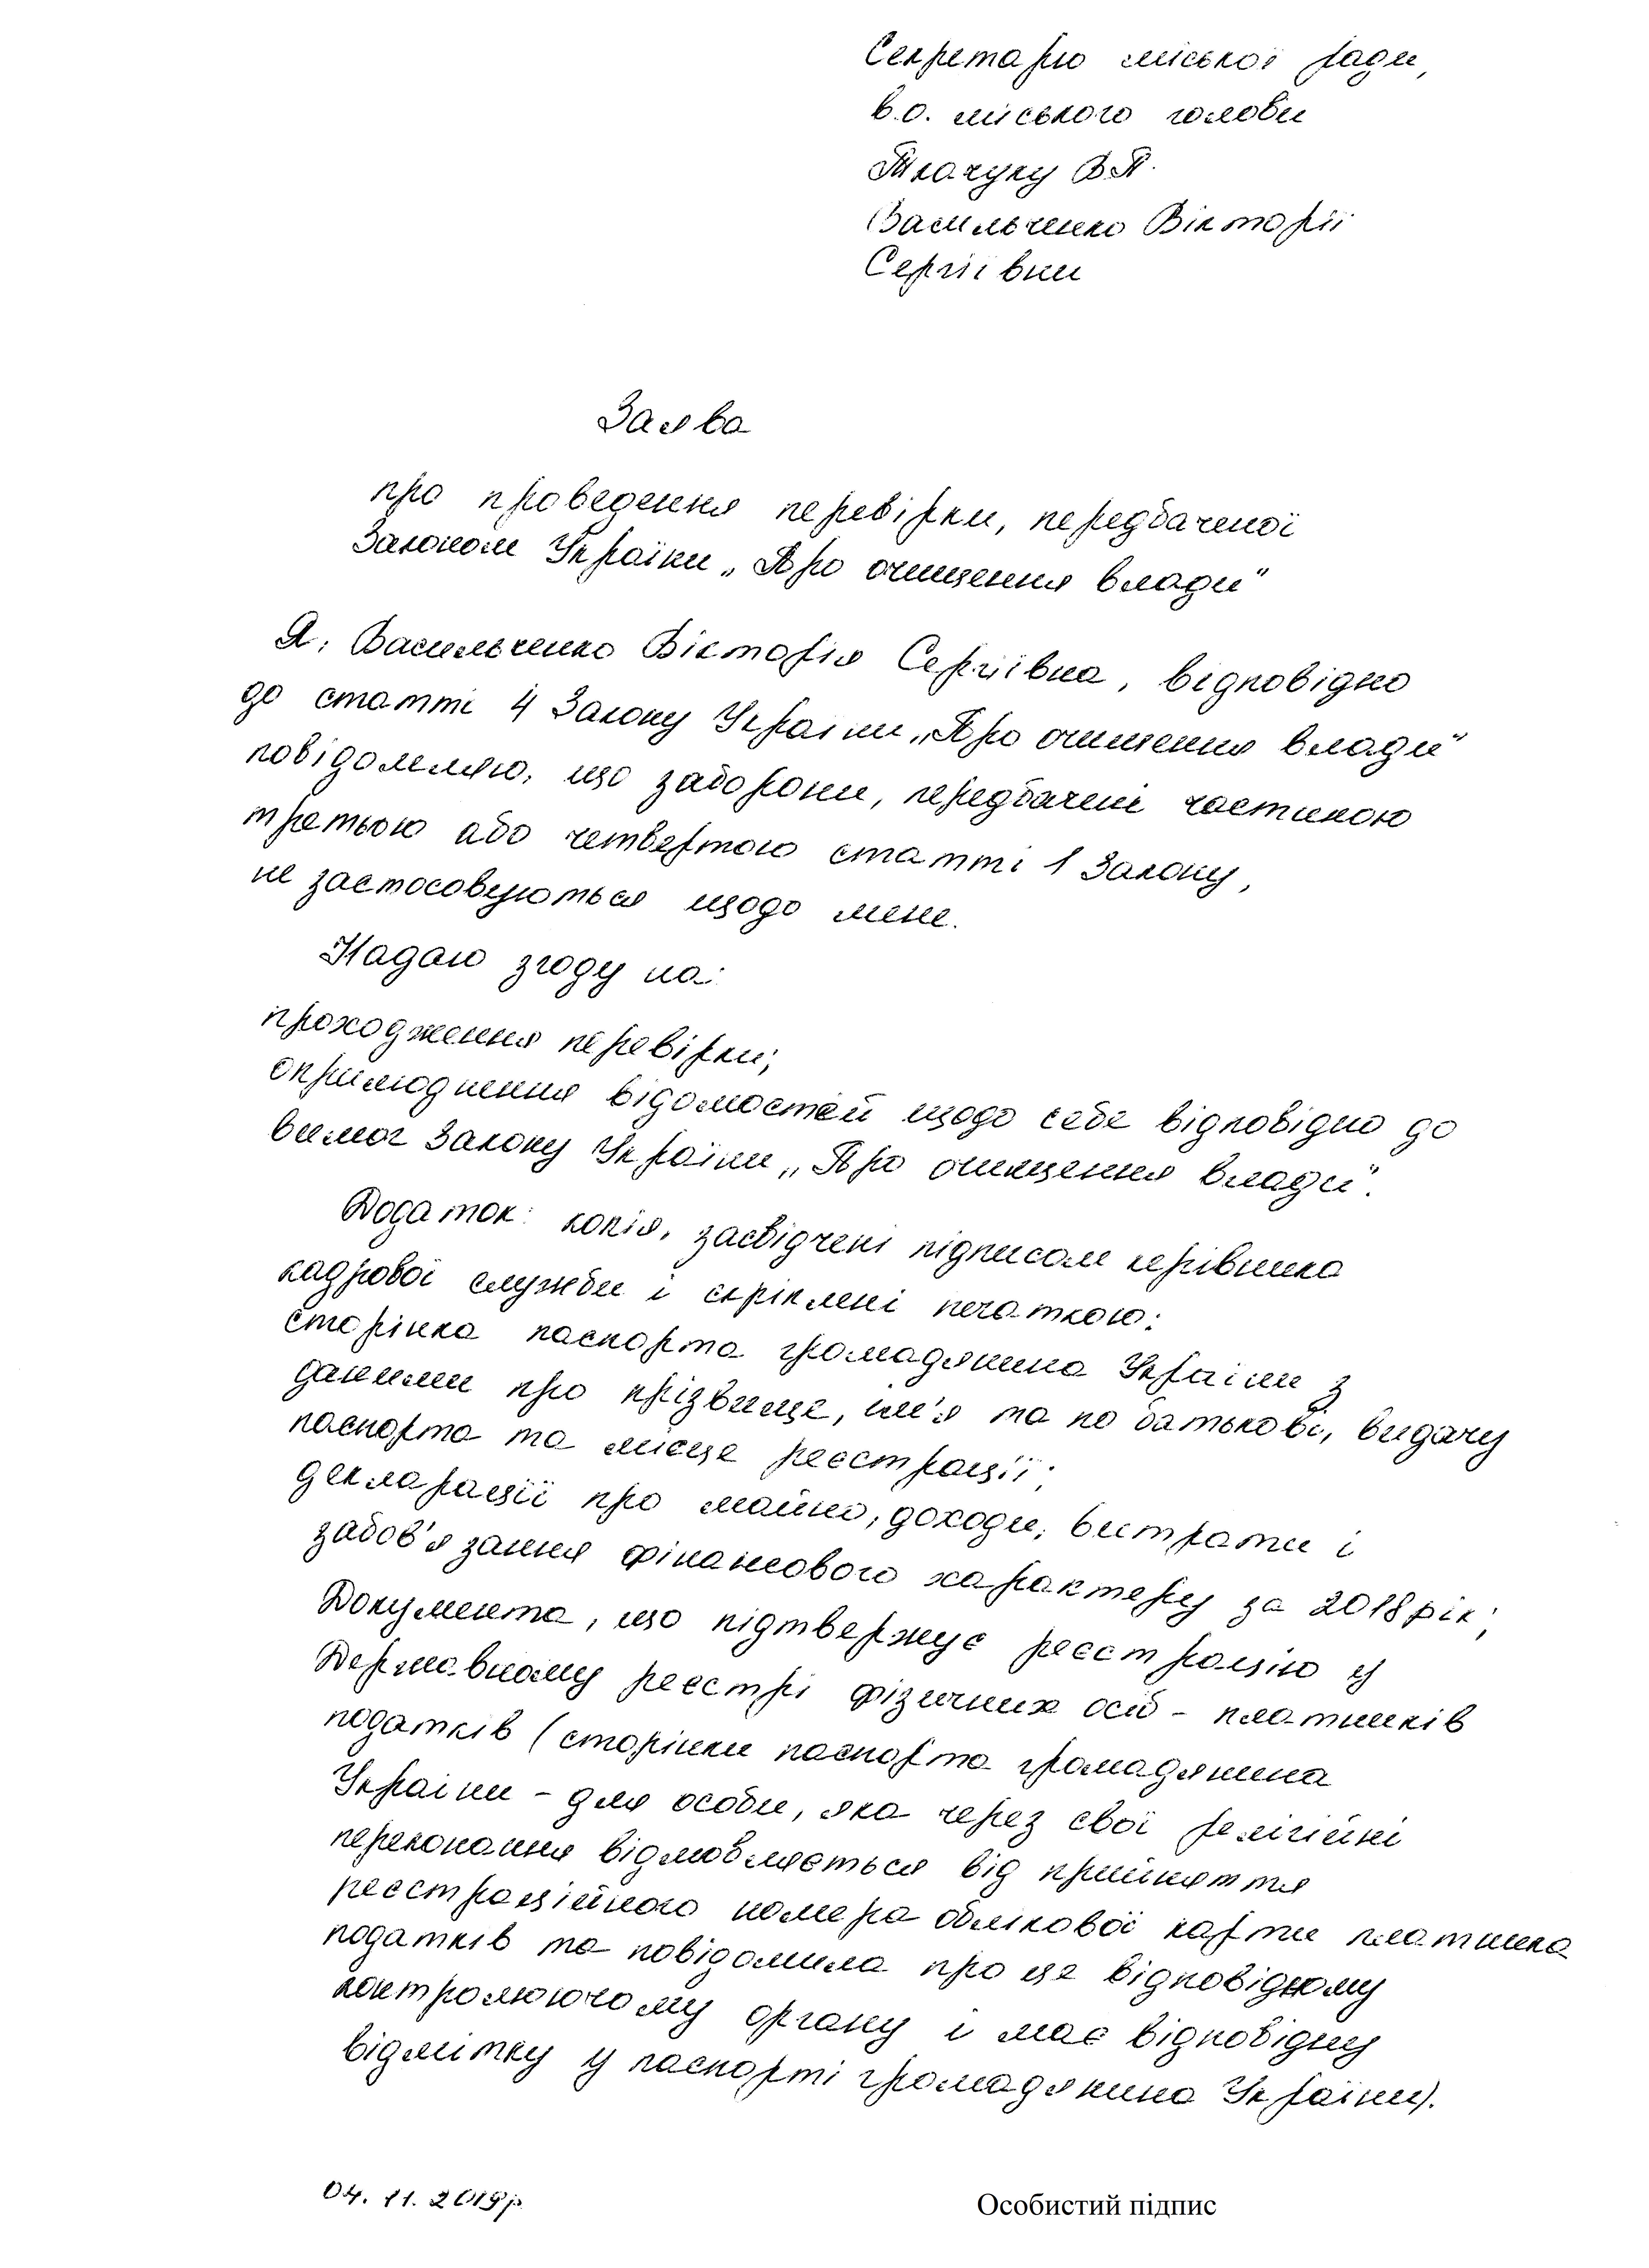 Секретарю міської ради,
в.о. міського голови
Ткачуку В.П.
Васильченко Вікторії
Сергіївни
Заява
про проведення перевірки, передбаченої
Законом України „Про очищення влади"
Я, Васильченко Вікторія Сергіївна, відповідно
до статті 4 Закону України „Про очищення влади"
повідомляю, що заборони, передбачені частиною
третьою або четвертою статті 1 Закону,
не застосовуються щодо мене.
Надаю згоду на:
проходження перевірки;
оприлюднення відомостей щодо себе відповідно до
вимог Закону України „Про очищення влади".
Додаток: копія, засвідчені підписом керівника
кадрової служби і скріплені печаткою:
сторінка паспорта громадянина України з
даними про прізвище, ім'я та по батькові, видачу
паспорта та місце реєстрації;
декларації про майно, доходи, витрати і
зобов'язання фінансового характеру за 2018 рік;
Документа, що підтвержує реєстрацію у
Державному реєстрі фізичних осіб - платників
податків (сторінки паспорта громадянина
України - для особи, яка через свої релігійні
переконання відмовляється від прийняття
реєстраційного номера облікової карти платника
податків та повідомила про це відповідному
контролюючому органу і має відповідну
відмітку у паспорті громадянина України).
04.11.2019р.
Особистий підпис